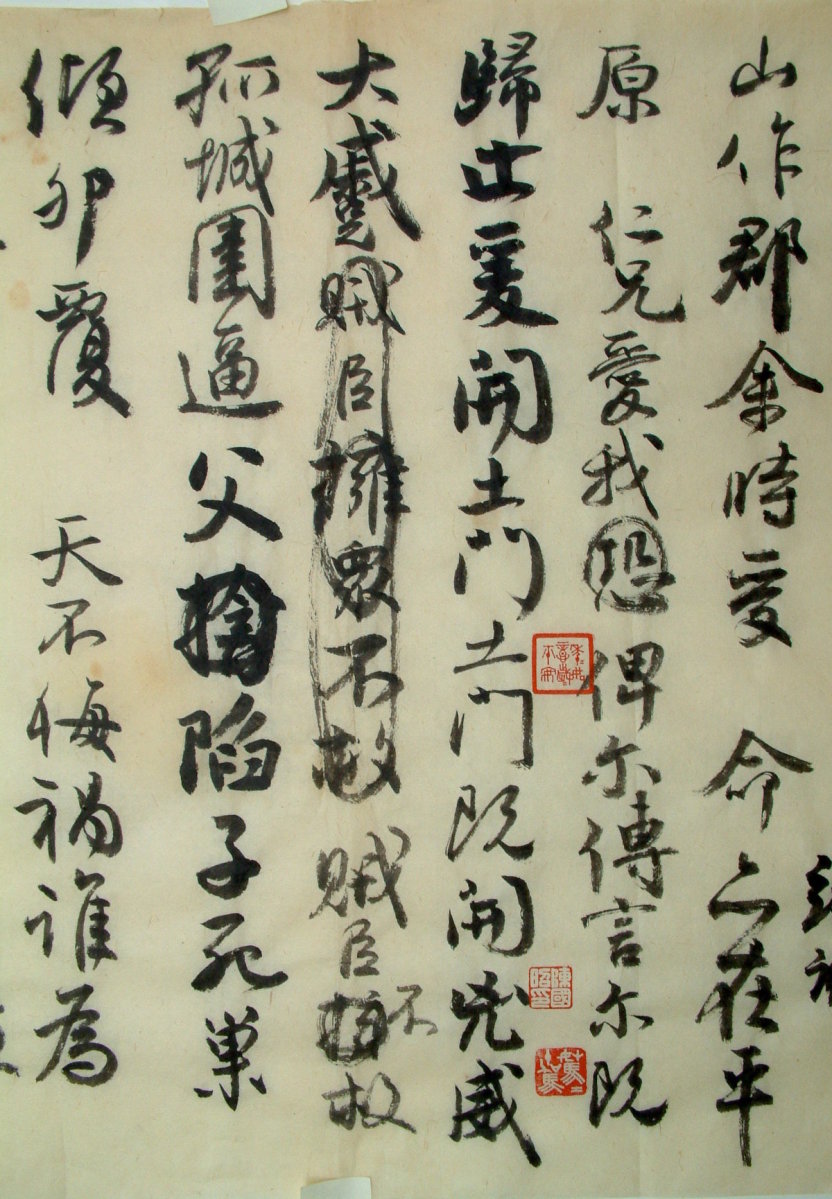 山作郡余時受 命亦在平
原 仁兄愛我恐俾尓傳言尓既
歸止爰開土門土門既開兇威
大蹙賊臣擁眾不救賊臣不救
孤城圍逼父陷子死巢
傾卵覆 天不悔禍誰為